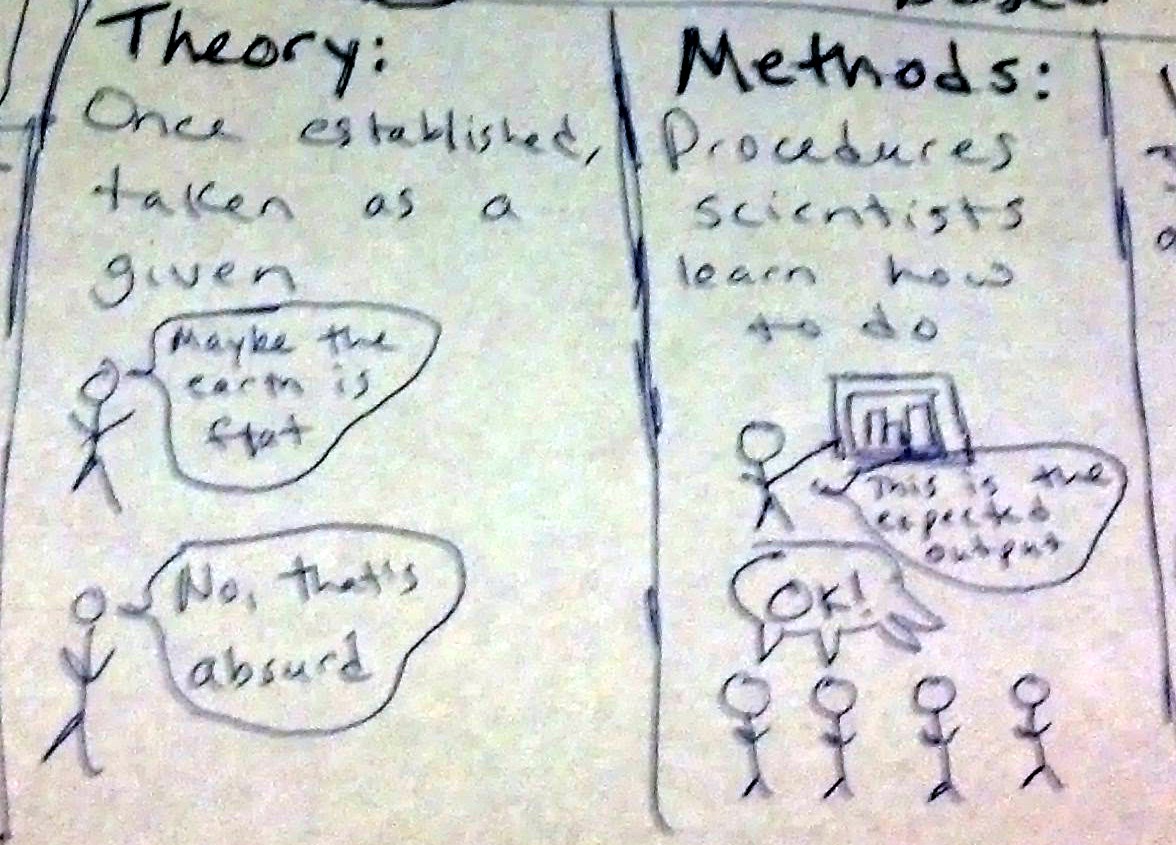 Theory:
Once established,
taken as a
given
Maybe the
earth is
flat
No, that's
absurd
Methods:
Procedures
scientists
learn how
to do
This is the
expected
output
OK!